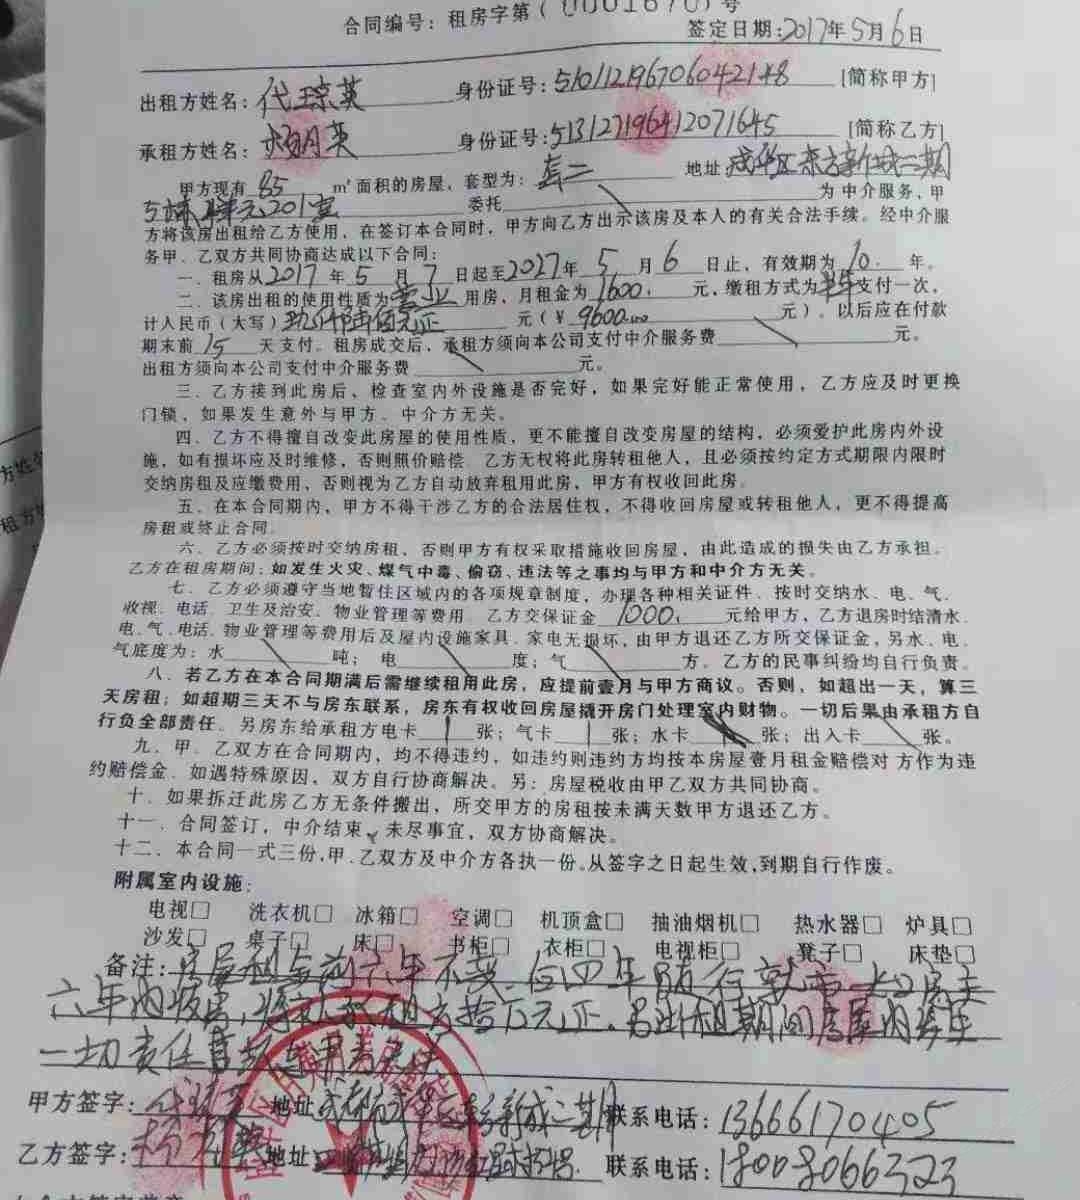 合同编号：租房字第（0001670）号
签定日期:2017年5月6日
出租方姓名：代琼英 身份证号：510112196706042148 [简称甲方]
承租方姓名：杨明英 身份证号:513127196412071645 [简称乙方]
甲方现有 85 ㎡面积的房屋，套型为：套二 地址:成华区东方新城二期
5栋 单元201室 委托 为中介服务，甲
方将该房出租给乙方使用，在签订本合同时，甲方向乙方出示该房及本人的有关合法手续。经中介服
务甲、乙双方共同协商达成以下合同：
一、租房从2017年5月7日起至2027年5月6日止，有效期为10年。
二、该房出租的使用性质为营业用房，月租金为1600.元,缴租方式为半年支付一次，
计人民币（大写）玖仟陆佰元正 元（¥ 9600.00 元）。以后应在付款
期末前15天支付。租房成交后，承租方须向本公司支付中介服务费 元。
出租方须向本公司支付中介服务费 元。
三、乙方接到此房后、检查室内外设施是否完好，如果完好能正常使用，乙方应及时更换
门锁，如果发生意外与甲方、中介方无关。
四、乙方不得擅自改变此房屋的使用性质，更不能擅自改变房屋的结构，必须爱护此房内外设
施，如有损坏应及时维修，否则照价赔偿。乙方无权将此房转租他人，且必须按约定方式期限内限时
交纳房租及应缴费用、否则视为乙方自动放弃租用此房，甲方有权收回此房。
五、在本合同期内，甲方不得干涉乙方的合法居住权，不得收回房屋或转租他人，更不得提高
房租或终止合同。
六、乙方必须按时交纳房租、否则甲方有权采取措施收回房屋，由此造成的损失由乙方承担。
乙方在租房期间：如发生火灾、煤气中毒、偷窃、违法等之事均与甲方和中介方无关。
七、乙方必须遵守当地暂住区域内的各项规章制度，办理各种相关证件、按时交纳水、电、气、
收视、电话、卫生及治安、物业管理等费用。乙方交保证金 1000. 元给甲方，乙方退房时结清水、
电、气、电话、物业管理等费用后及屋内设施家具、家电无损坏，由甲方退还乙方所交保证金，另水、电、
气底度为：水 吨；电 度；气 方。乙方的民事纠纷均自行负责。
八、若乙方在本合同期满后需继续租用此房，应提前壹月与甲方商议。否则，如超出一天，算三
天房租；如超期三天不与房东联系，房东有权收回房屋撬开房门处理室内财物。一切后果由承租方自
行负全部责任。另房东给承租方电卡 张；气卡 张；水卡 张；出入卡 张。
九、甲、乙双方在合同期内，均不得违约，如违约则违约方均按本房屋壹月租金赔偿对方作为违
约赔偿金。如遇特殊原因，双方自行协商解决。另：房屋税收由甲乙双方共同协商。
十、如果拆迁此房乙方无条件搬出，所交甲方的房租按未满天数甲方退还乙方。
十一、合同签订，中介结束，未尽事宜，双方协商解决。
十二、本合同一式三份,甲、乙双方及中介方各执一份。从签字之日起生效,到期自行作废。
附属室内设施：
电视□ 洗衣机□ 冰箱□ 空调□ 机顶盒□ 抽油烟机□ 热水器□ 炉具□
沙发□ 桌子□ 床□ 书柜□ 衣柜□ 电视柜□ 凳子□ 床垫□
备注：房屋租金前六年不变，后四年随行就市 房东
六年内收房，将 拾万元正。另出租期间房屋内发生
一切责任
甲方签字： 地址 成都市成华区东方新城二期 联系电话：13666170405
乙方签字：杨 英 地址 联系电话：18008066323